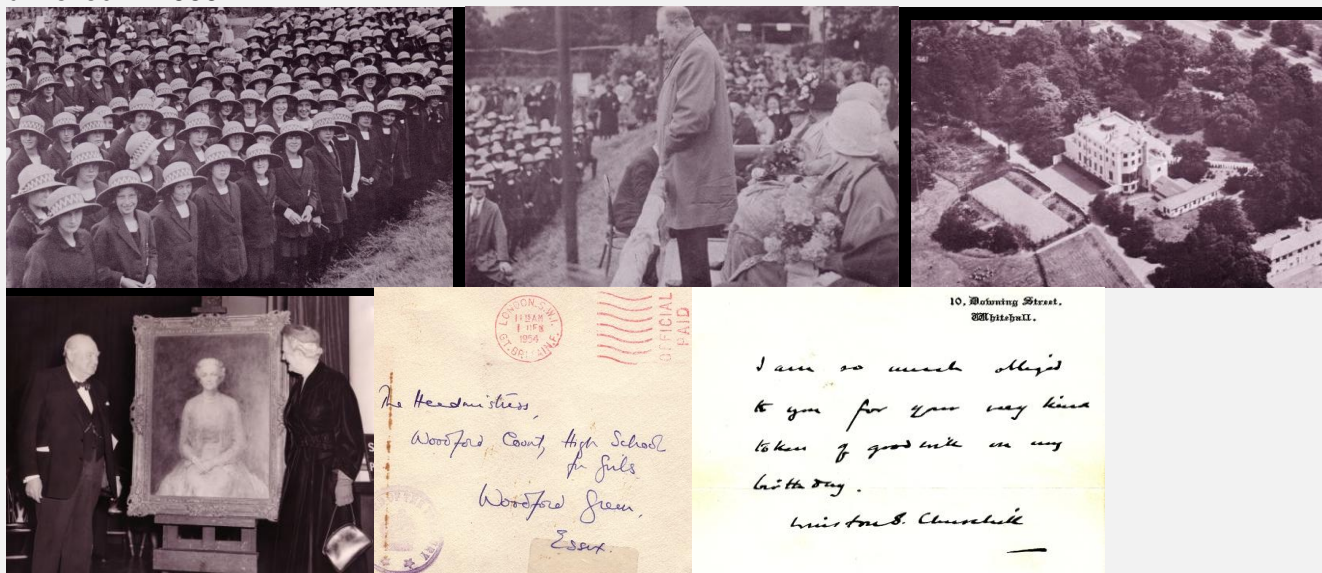 LONDON. S.W.1.
11 15 AM
1 DEC
1954
GT. BRITAIN. E.
OFFICIAL
PAID
The Headmistress,
Woodford County High School
for Girls
Woodford Green,
Essex.
10, Downing Street,
Whitehall.
I am so much obliged
to you for your very kind
token of goodwill on my
birthday.
Winston S. Churchill